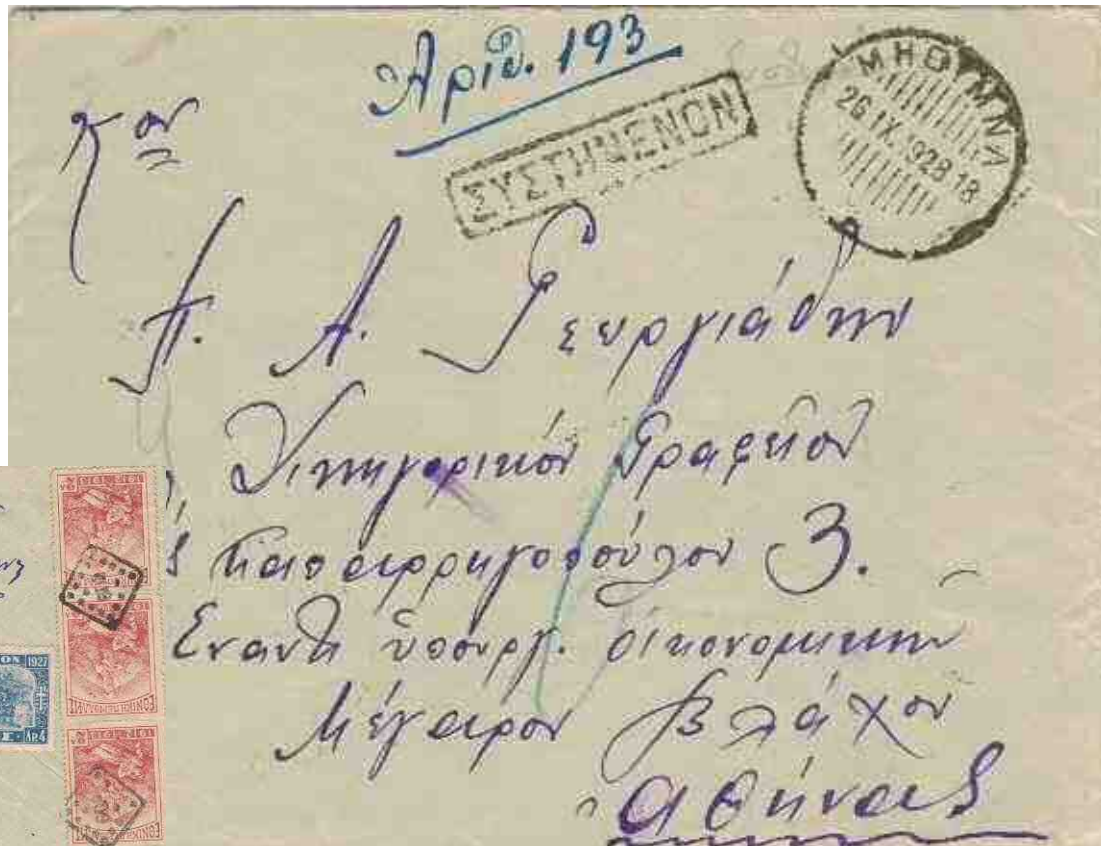 Ἀριθ. 193
ΣΥΣΤΗΜΕΝΟΝ
ΜΗΘΥΜΝΑ
26 IX. 928 18
Κον
Π. Α. Γεωργιάδην
Δικηγορικὸν Γραφεῖον
Παπαρρηγοπούλου 3.
Ἔναντι ὑπουργ. Οἰκονομικῶν
Μέγαρον Βλάχου
Ἀθήνας
1927
ΔΡ. 4